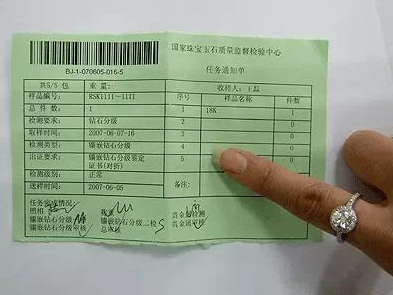 国家珠宝玉石质量监督检验中心
BJ-1-070605-016-5
任务通知单
共5/5 包 重量:
收样人:
样品编号: RSK1111-1111
序号 样品名称 件数
总件数: 1
1 18K 1
检测要求: 钻石分级
2 0
取样时间: 2007-06-07-16
3 0
检测类型: 镶嵌钻石分级
4 0
出证要求: 镶嵌钻石分级鉴定证书(对折)
5 0
检测级别: 正常
送样时间: 2007-06-05
备注:
任务完成情况:
照相
贵金属检测
镶嵌钻石分级审核
镶嵌钻石分级二检
贵金属审核